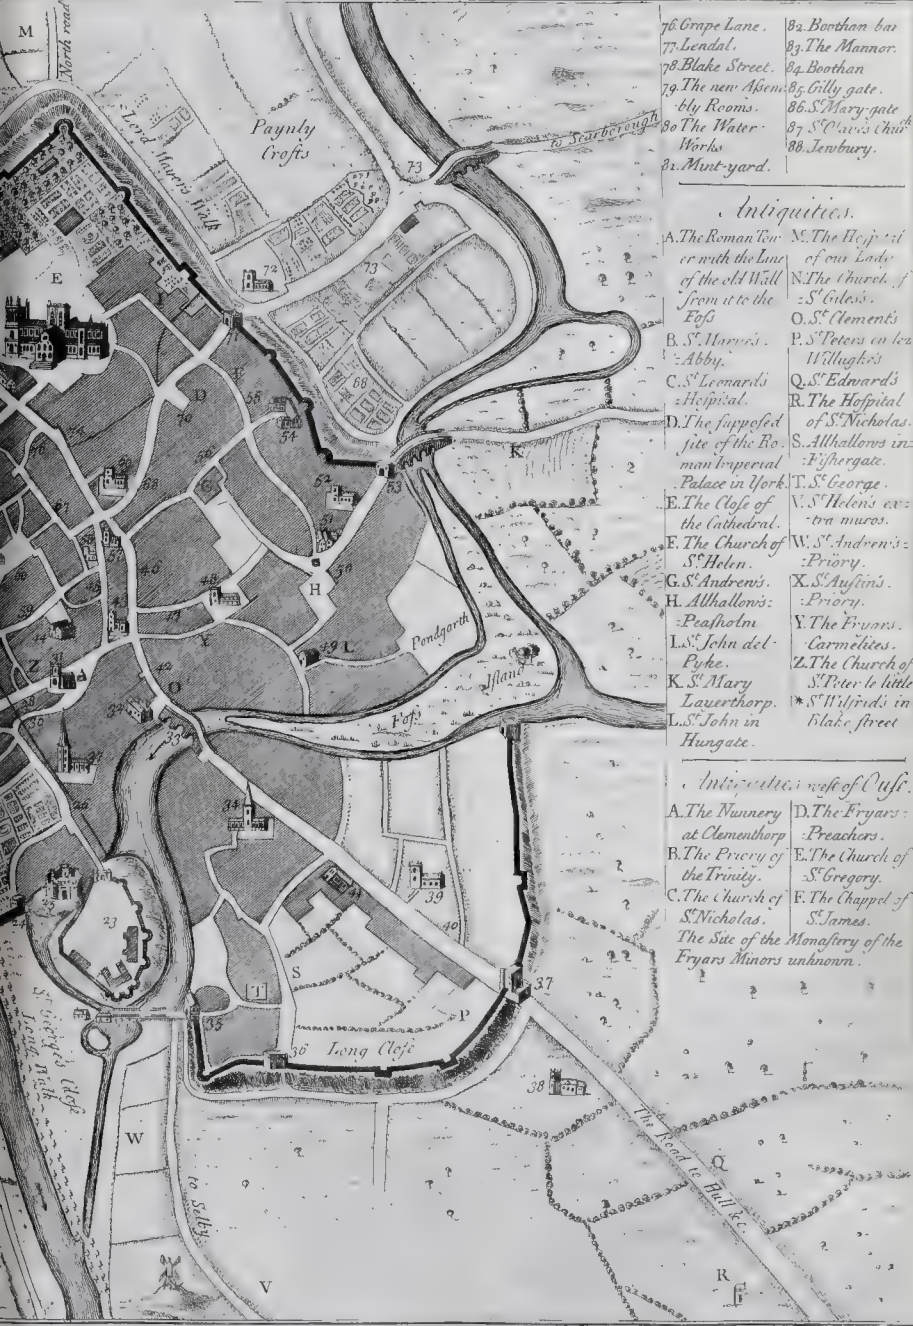 M
North road
Lord Mayors Walk
Paynly
Crofts
to Scarborough
73
72
73
E
I
D
F
55
54
70
68
66
74
67
56
G
52
53
K
51
50
H
46
48
47
Y
49
L
Z
42
O
34
33
Pondgorth
Island
Foss
34
39
40
23
24
S
T
35
36 Long Close
P
37
38
St. George's Close
Long Walk
W
to Selby
V
The Road to Hull &c.
Q
R
76. Grape Lane.
77. Lendal.
78. Blake Street.
79. The new Assem
bly Rooms.
80 The Water-
Works
81. Mint-yard.
82. Boothan bar
83. The Mannor.
84. Boothan
85. Gilly gate.
86. St. Mary-gate
87 St. Olave's Church
88. Jewbury.
Antiquities.
A. The Roman Tow
er with the Line
of the old Wall
from it to the
Foss
B. St. Marie's
Abby.
C. St. Leonard's
Hospital.
D. The supposed
site of the Ro
man Imperial
Palace in York.
E. The Close of
the Cathedral.
F. The Church of
St. Helen.
G. St. Andrew's.
H. Allhallow's
Peasholm
I. St. John del-
Pyke.
K. St. Mary
Layerthorp.
L. St. John in
Hungate.
M. The Hospital
of our Lady
N. The Church of
St. Giles's.
O. St. Clement's
P. St. Peters in lez
Willughes
Q. St. Edward's
R. The Hospital
of St. Nicholas.
S. Allhallows in
Fishergate.
T. St. George.
V. St. Helen's ex-
tra muros.
W. St. Andrew's
Priory.
X. St. Austin's
Priory.
Y. The Fryars.
Carmelites.
Z. The Church of
St. Peter le little
* St. Wilfrid's in
Blake street
Antiquities west of Ouse.
A. The Nunnery
at Clementhorp
B. The Priory of
the Trinity.
C. The Church of
St. Nicholas.
D. The Fryars
Preachers.
E. The Church of
St. Gregory.
F. The Chappel of
St. James.
The Site of the Monastrry of the
Fryars Minors unknown.